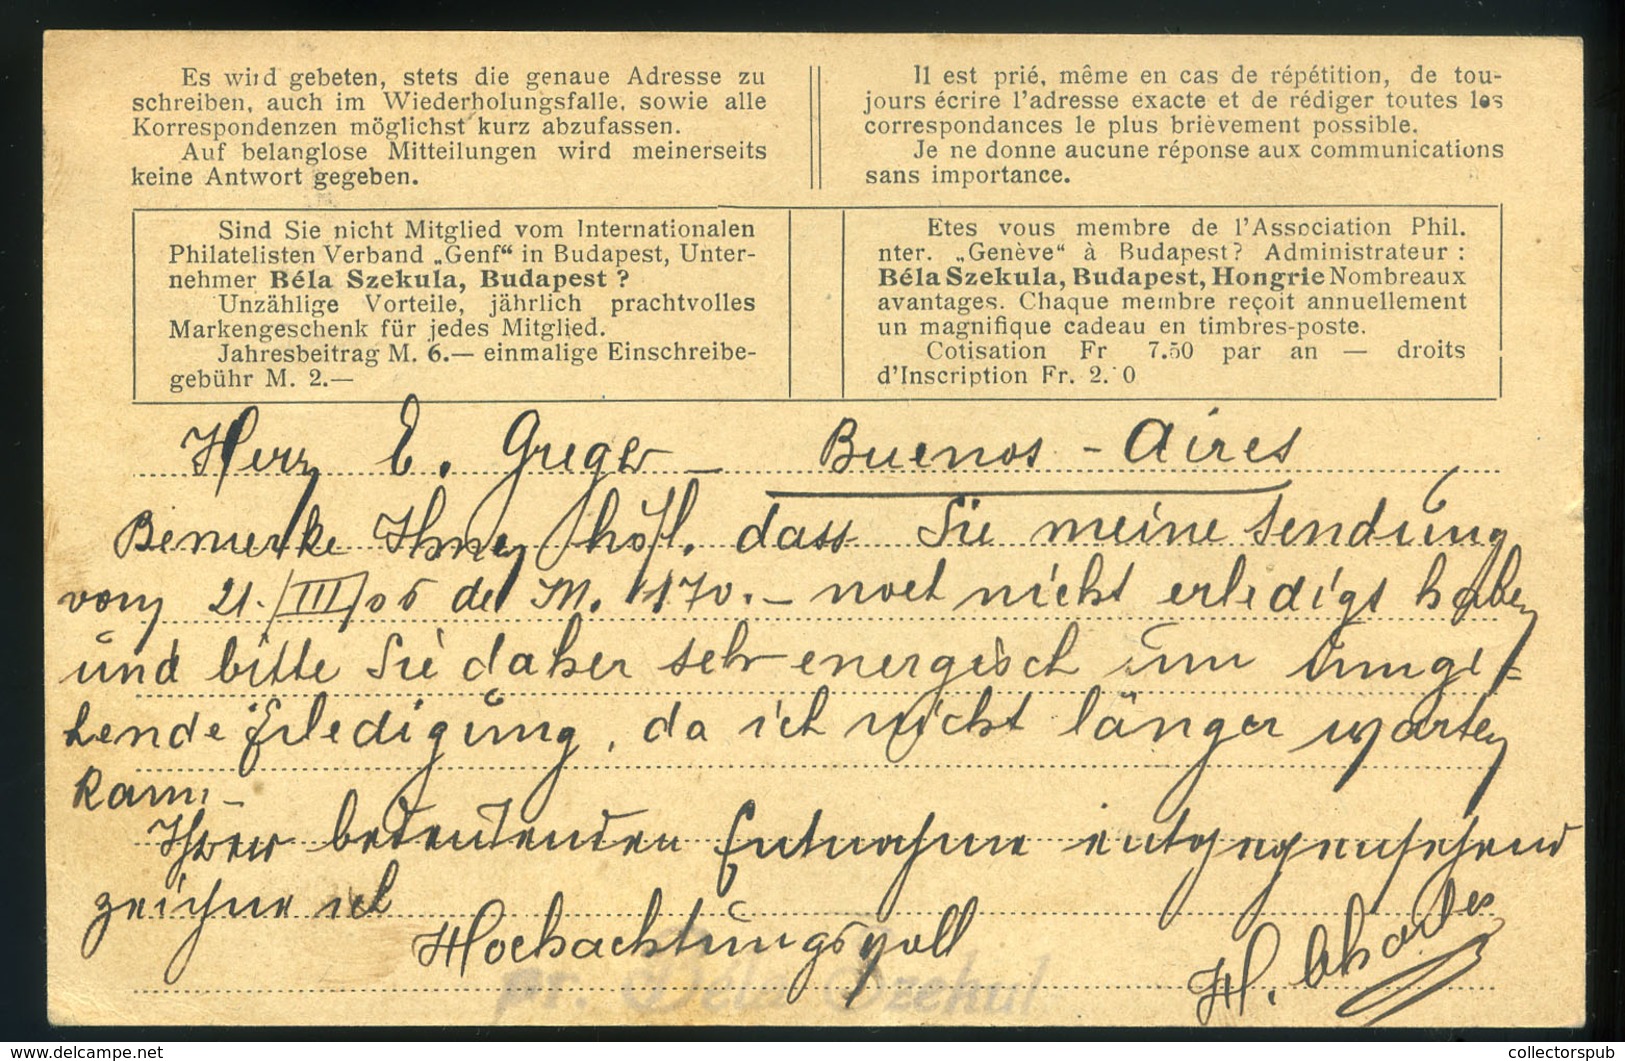 Es wird gebeten, stets die genaue Adresse zu
schreiben, auch im Wiederholungsfalle, sowie alle
Korrespondenzen möglichst kurz abzufassen.
Auf belanglose Mitteilungen wird meinerseits
keine Antwort gegeben.
Il est prié, même en cas de répétition, de tou-
jours écrire l'adresse exacte et de rédiger toutes les
correspondances le plus brièvement possible.
Je ne donne aucune réponse aux communications
sans importance.
Sind Sie nicht Mitglied vom Internationalen
Philatelisten Verband „Genf“ in Budapest, Unter-
nehmer Béla Szekula, Budapest ?
Unzählige Vorteile, jährlich prachtvolles
Markengeschenk für jedes Mitglied.
Jahresbeitrag M. 6.— einmalige Einschreibe-
gebühr M. 2.—
Etes vous membre de l'Association Phil.
nter. „Genève“ à Budapest? Administrateur :
Béla Szekula, Budapest, Hongrie Nombreaux
avantages. Chaque membre reçoit annuellement
un magnifique cadeau en timbres-poste.
Cotisation Fr 7.50 par an — droits
d'Inscription Fr. 2. 0
Herrn E. Greger – Buenos-Aires
Bemerke Ihnen höfl. dass Sie meine Sendung
vom 21./III/06 M. 170.– noch nicht erledigt haben
und bitte Sie daher sehr energisch um umge=
hende Erledigung, da ich nicht länger warten
kann –
Ihrer bedeutenden Entnahme entgegensehend
zeichne ich
Hochachtungsvoll
pr. Béla Szekul
H.
collectorspub